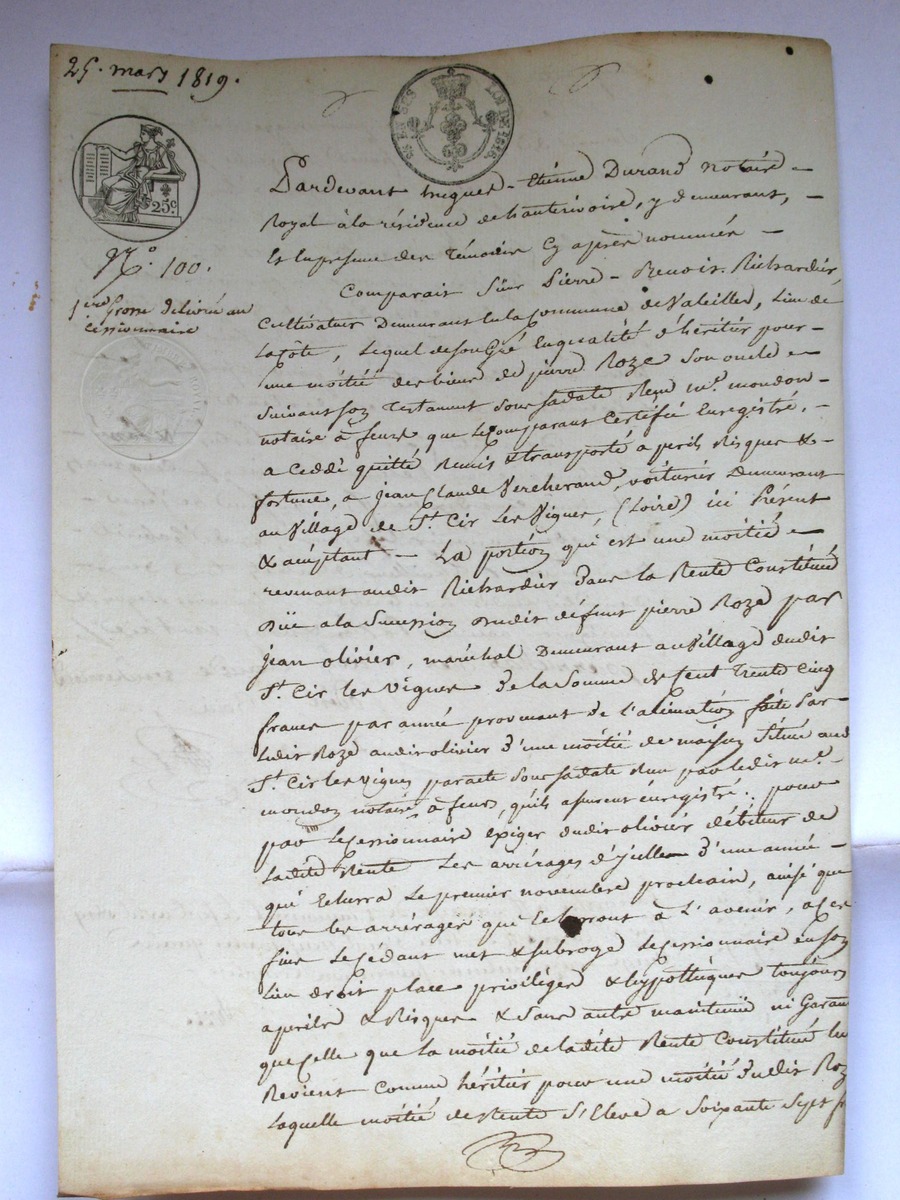 25. mars 1819.
LOI DE 1816.
25c
N.º 100.
1ere Grosse délivrée au
cessionnaire
Pardevant hugues-Etienne Durand Notaire
Royal à la résidence de hauterivoire, y demeurant,
En presence des Témoins cy après nommés
Comparait Sieur Pierre-Benoit Richardier
Cultivateur Demeurant en la Commune de Valeilles, Lieu de
la Côte, Lequel de son Gré En qualité d'héritier pour
une moitié des biens de pierre Roze Son oncle
suivant son Testament sous sa date Reçu Me. mondon
notaire à feurs que le Comparant Certifié Enregistré,
a Ceddé quitté Remis & transporté a perils Risques &
fortune, a jean Claude Vercherand, voiturier Demeurant
au Village de St. Cir Les Vignes, (Loire) ici Présent
& acceptant La portion qui est une moitié
revenant audit Richardier Dans la Rente Constituée
Düe a la Succession Dudit défunt pierre Roze par
jean olivier, maréchal Demeurant au Village dudit
St. Cir les Vignes De la Somme de Cent Trente Cinq
francs par année provenant de l'alienation faite Par
Ledit Roze audit olivier D'une moitié de maison Située audit
St. Cir les Vignes par acte sous sa date Reçu par ledit Me.
mondon notaire à feurs, qu'ils assurent enregistré. pour
par le cessionnaire Exiger dudit olivier débiteur de
Ladite Rente Les arrérages d'jcelle D'une année
qui Echerra Le premier novembre prochain, ainsi que
tous les arrérages qui Echerront à L'avenir, a ces
fins Le Cédant met & subroge Le Cessionnaire en son
Lieu droit place privilèges & hypothèques toujours
a perils & Risques & Sans autre maintenüe ni Garan
que Celle que La moitié de ladite Rente Constituée lui
Revient Comme héritier pour une moitié Dudit Roze
Laquelle moitié de Rente S'Eleve a Soixante Sept fr